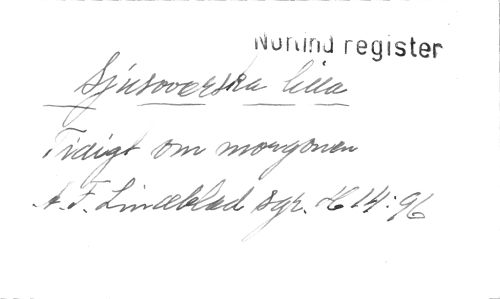 Norlind register
Sjusoverska lilla
Tidigt om morgonen
A. F. Lindblad sgr. H 14:96